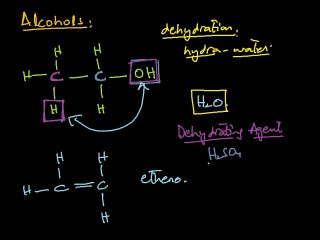 Alcohols:
dehydration.
hydra - water.
H H
H C C OH
H H
H₂O
Dehydrating Agent
H₂SO₄
H H
H C = C
H
ethene.